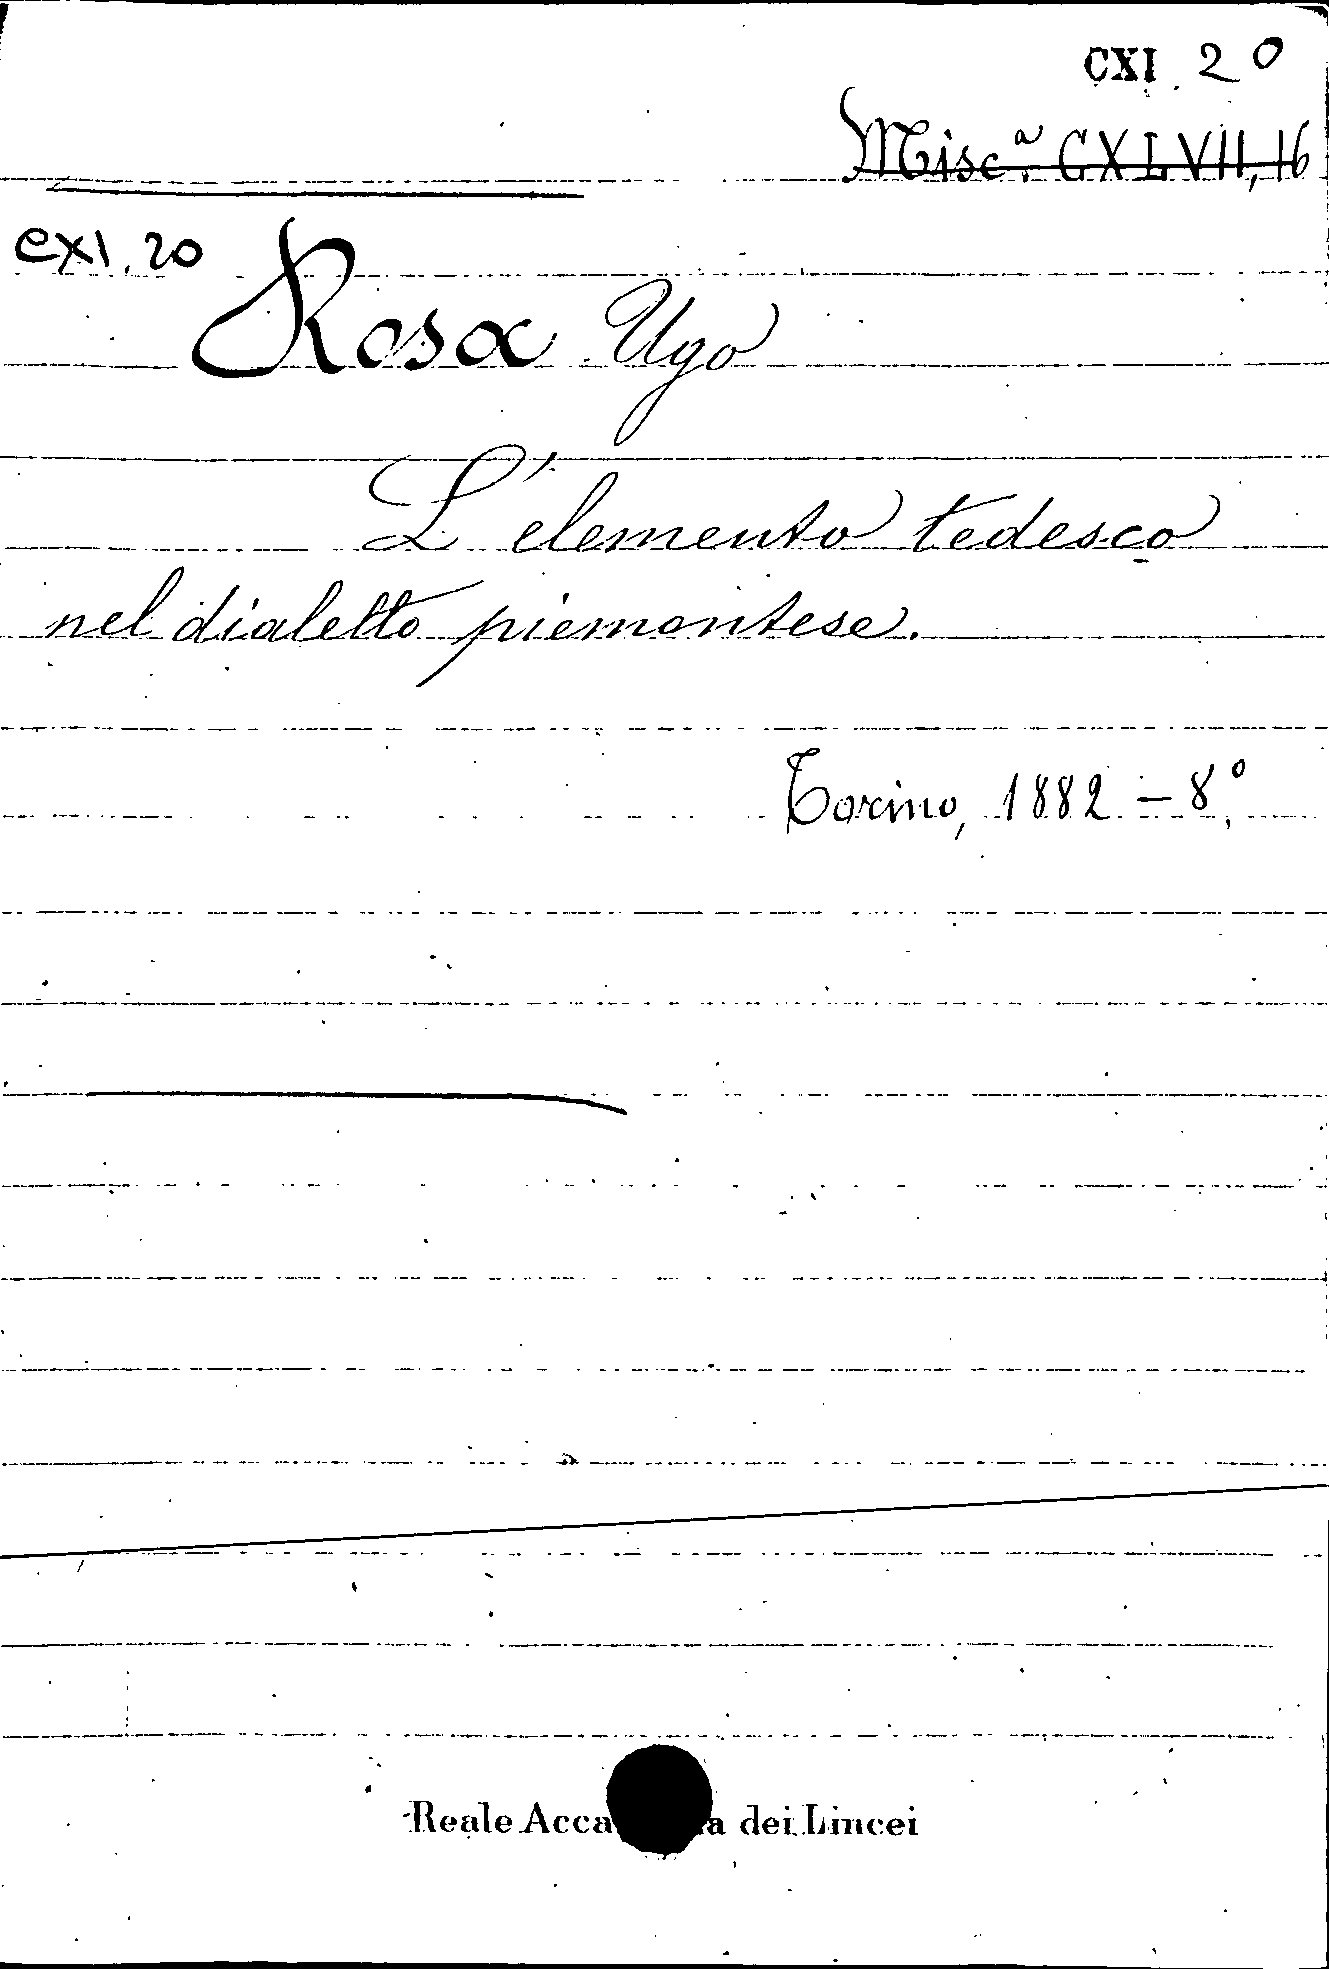 CXI. 20
Misc.ª CXLVII, 16
CXI. 20
Rosa Ugo
L'elemento tedesco
nel dialetto piemontese.
Torino, 1882 – 8.º
Reale Acca a dei Lincei